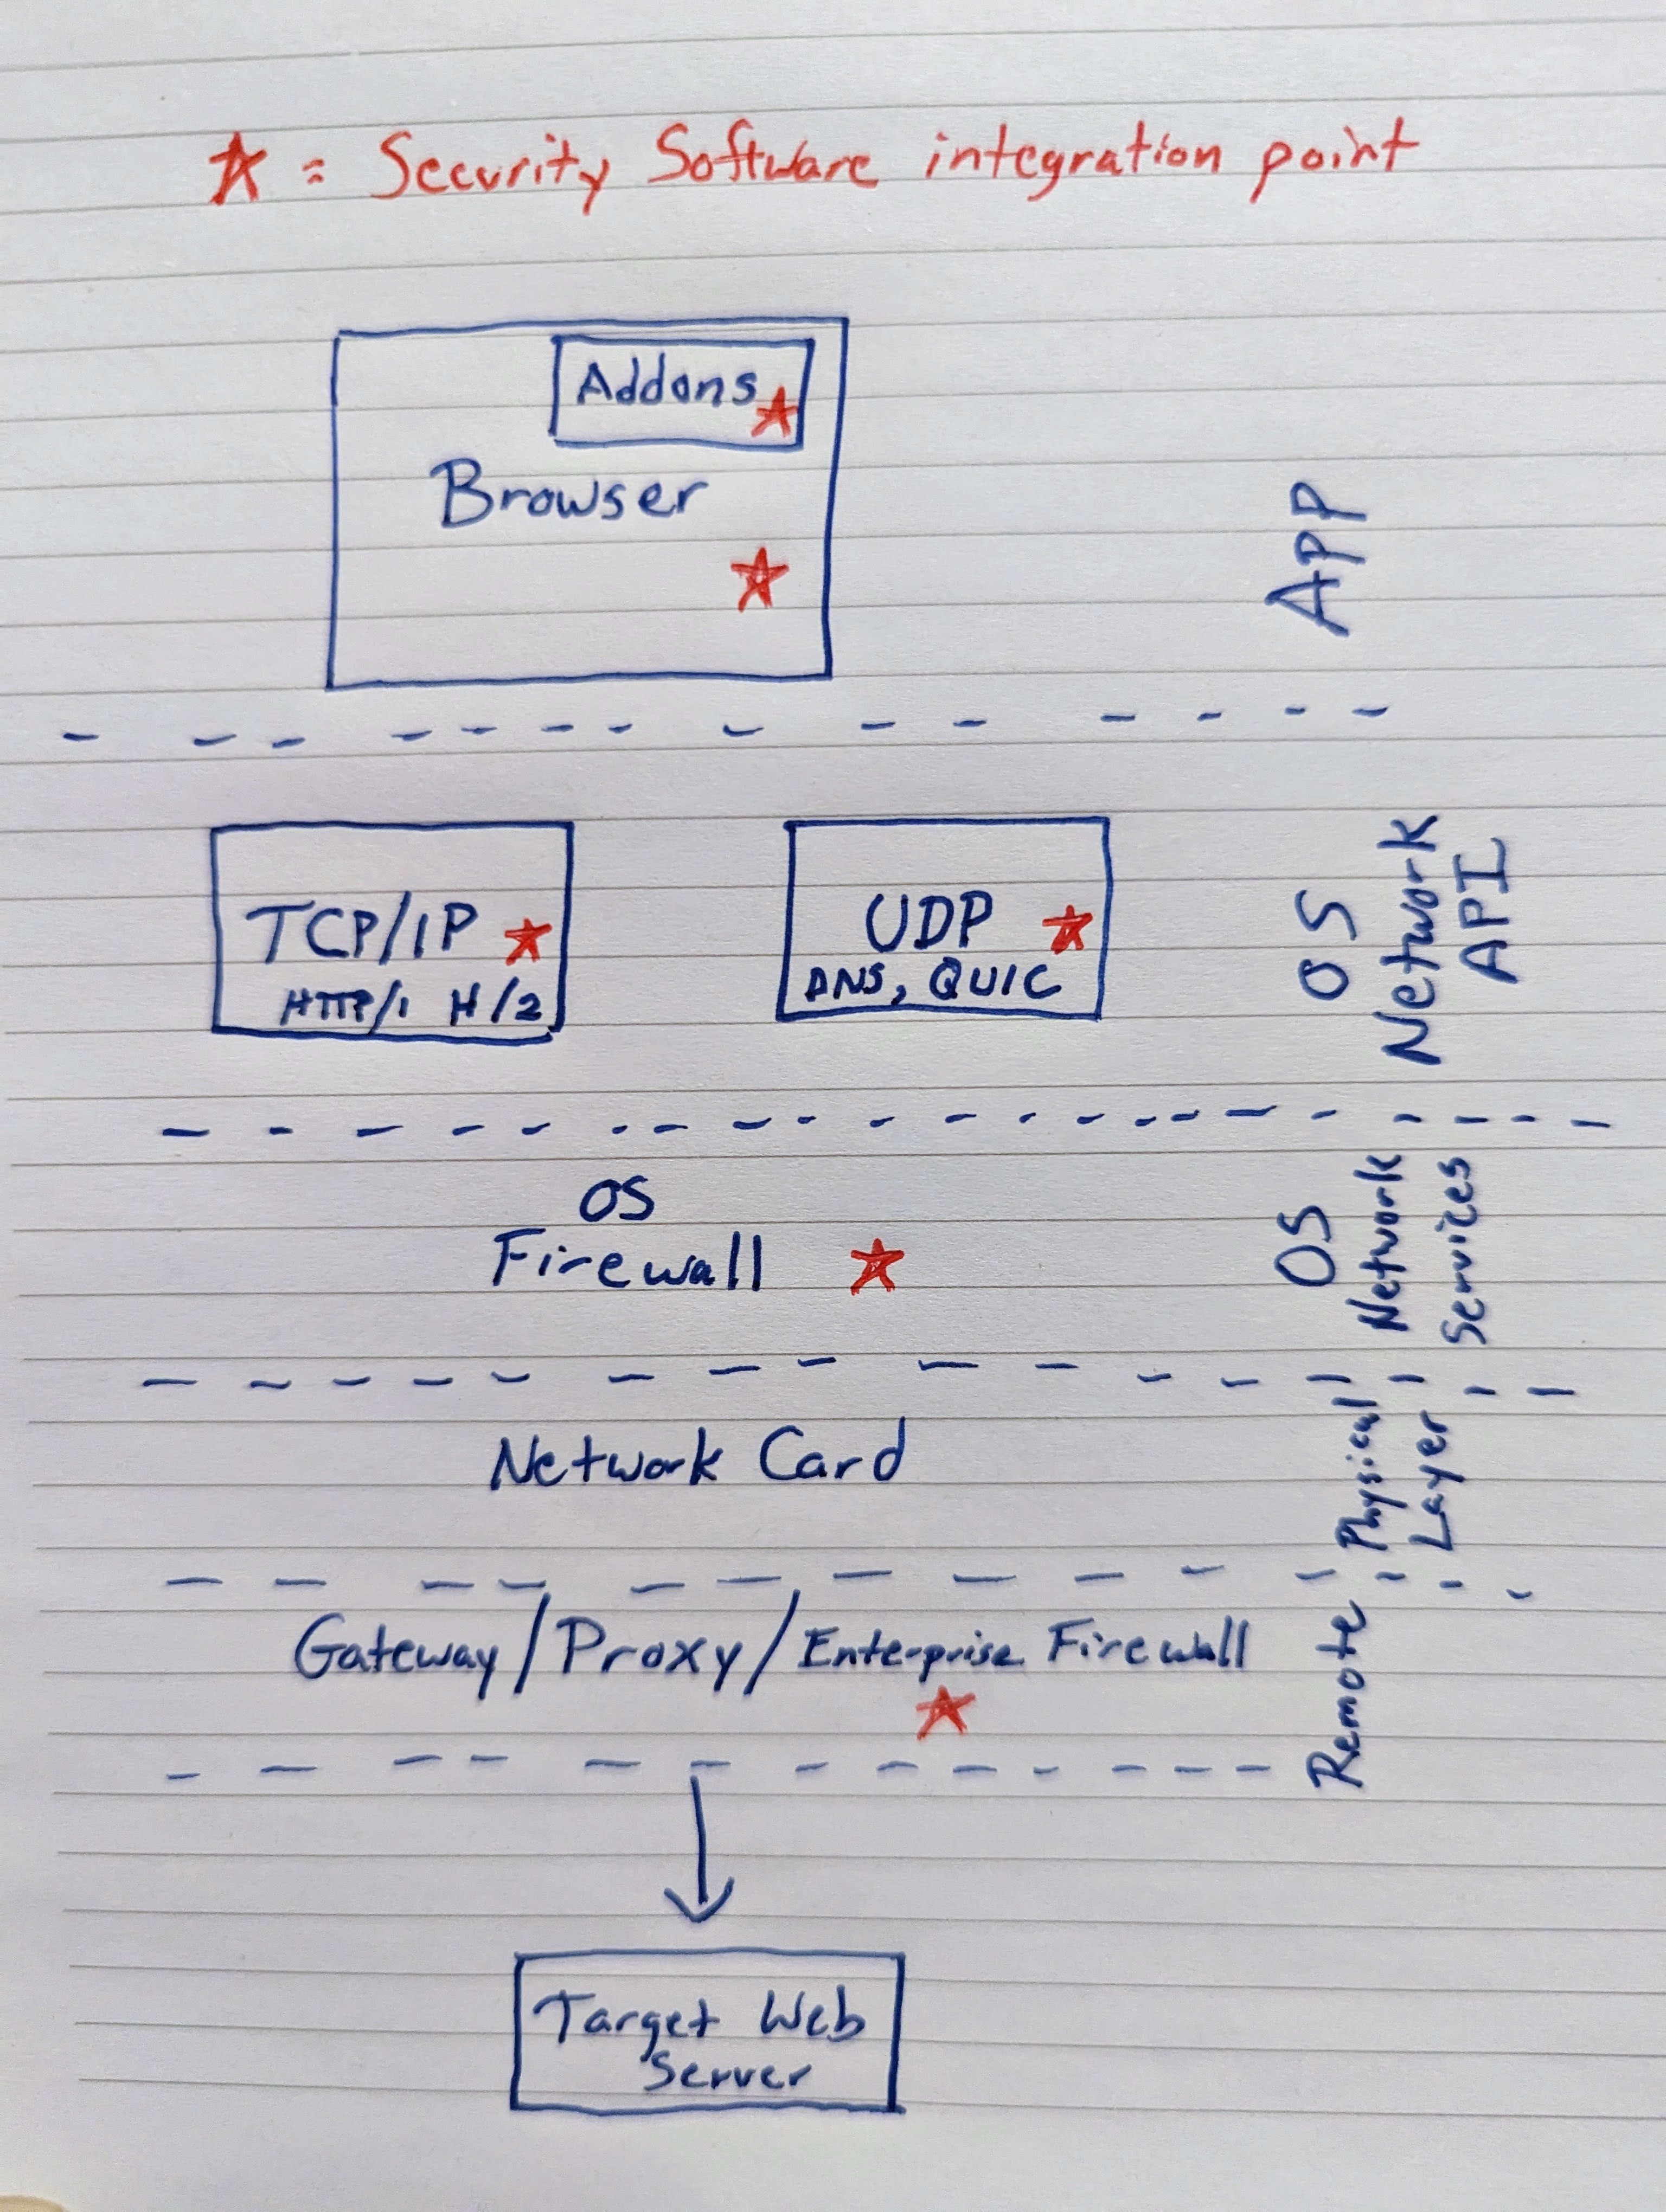 ★ = Security Software integration point
Addons ★
Browser
★
APP
TCP/IP ★
HTTP/1 H/2
UDP ★
DNS, QUIC
OS
Network
API
OS
Firewall ★
OS
Network
Services
Network Card
Physical
Layer
Gateway/Proxy/Enterprise Firewall
★
Remote
Target Web
Server